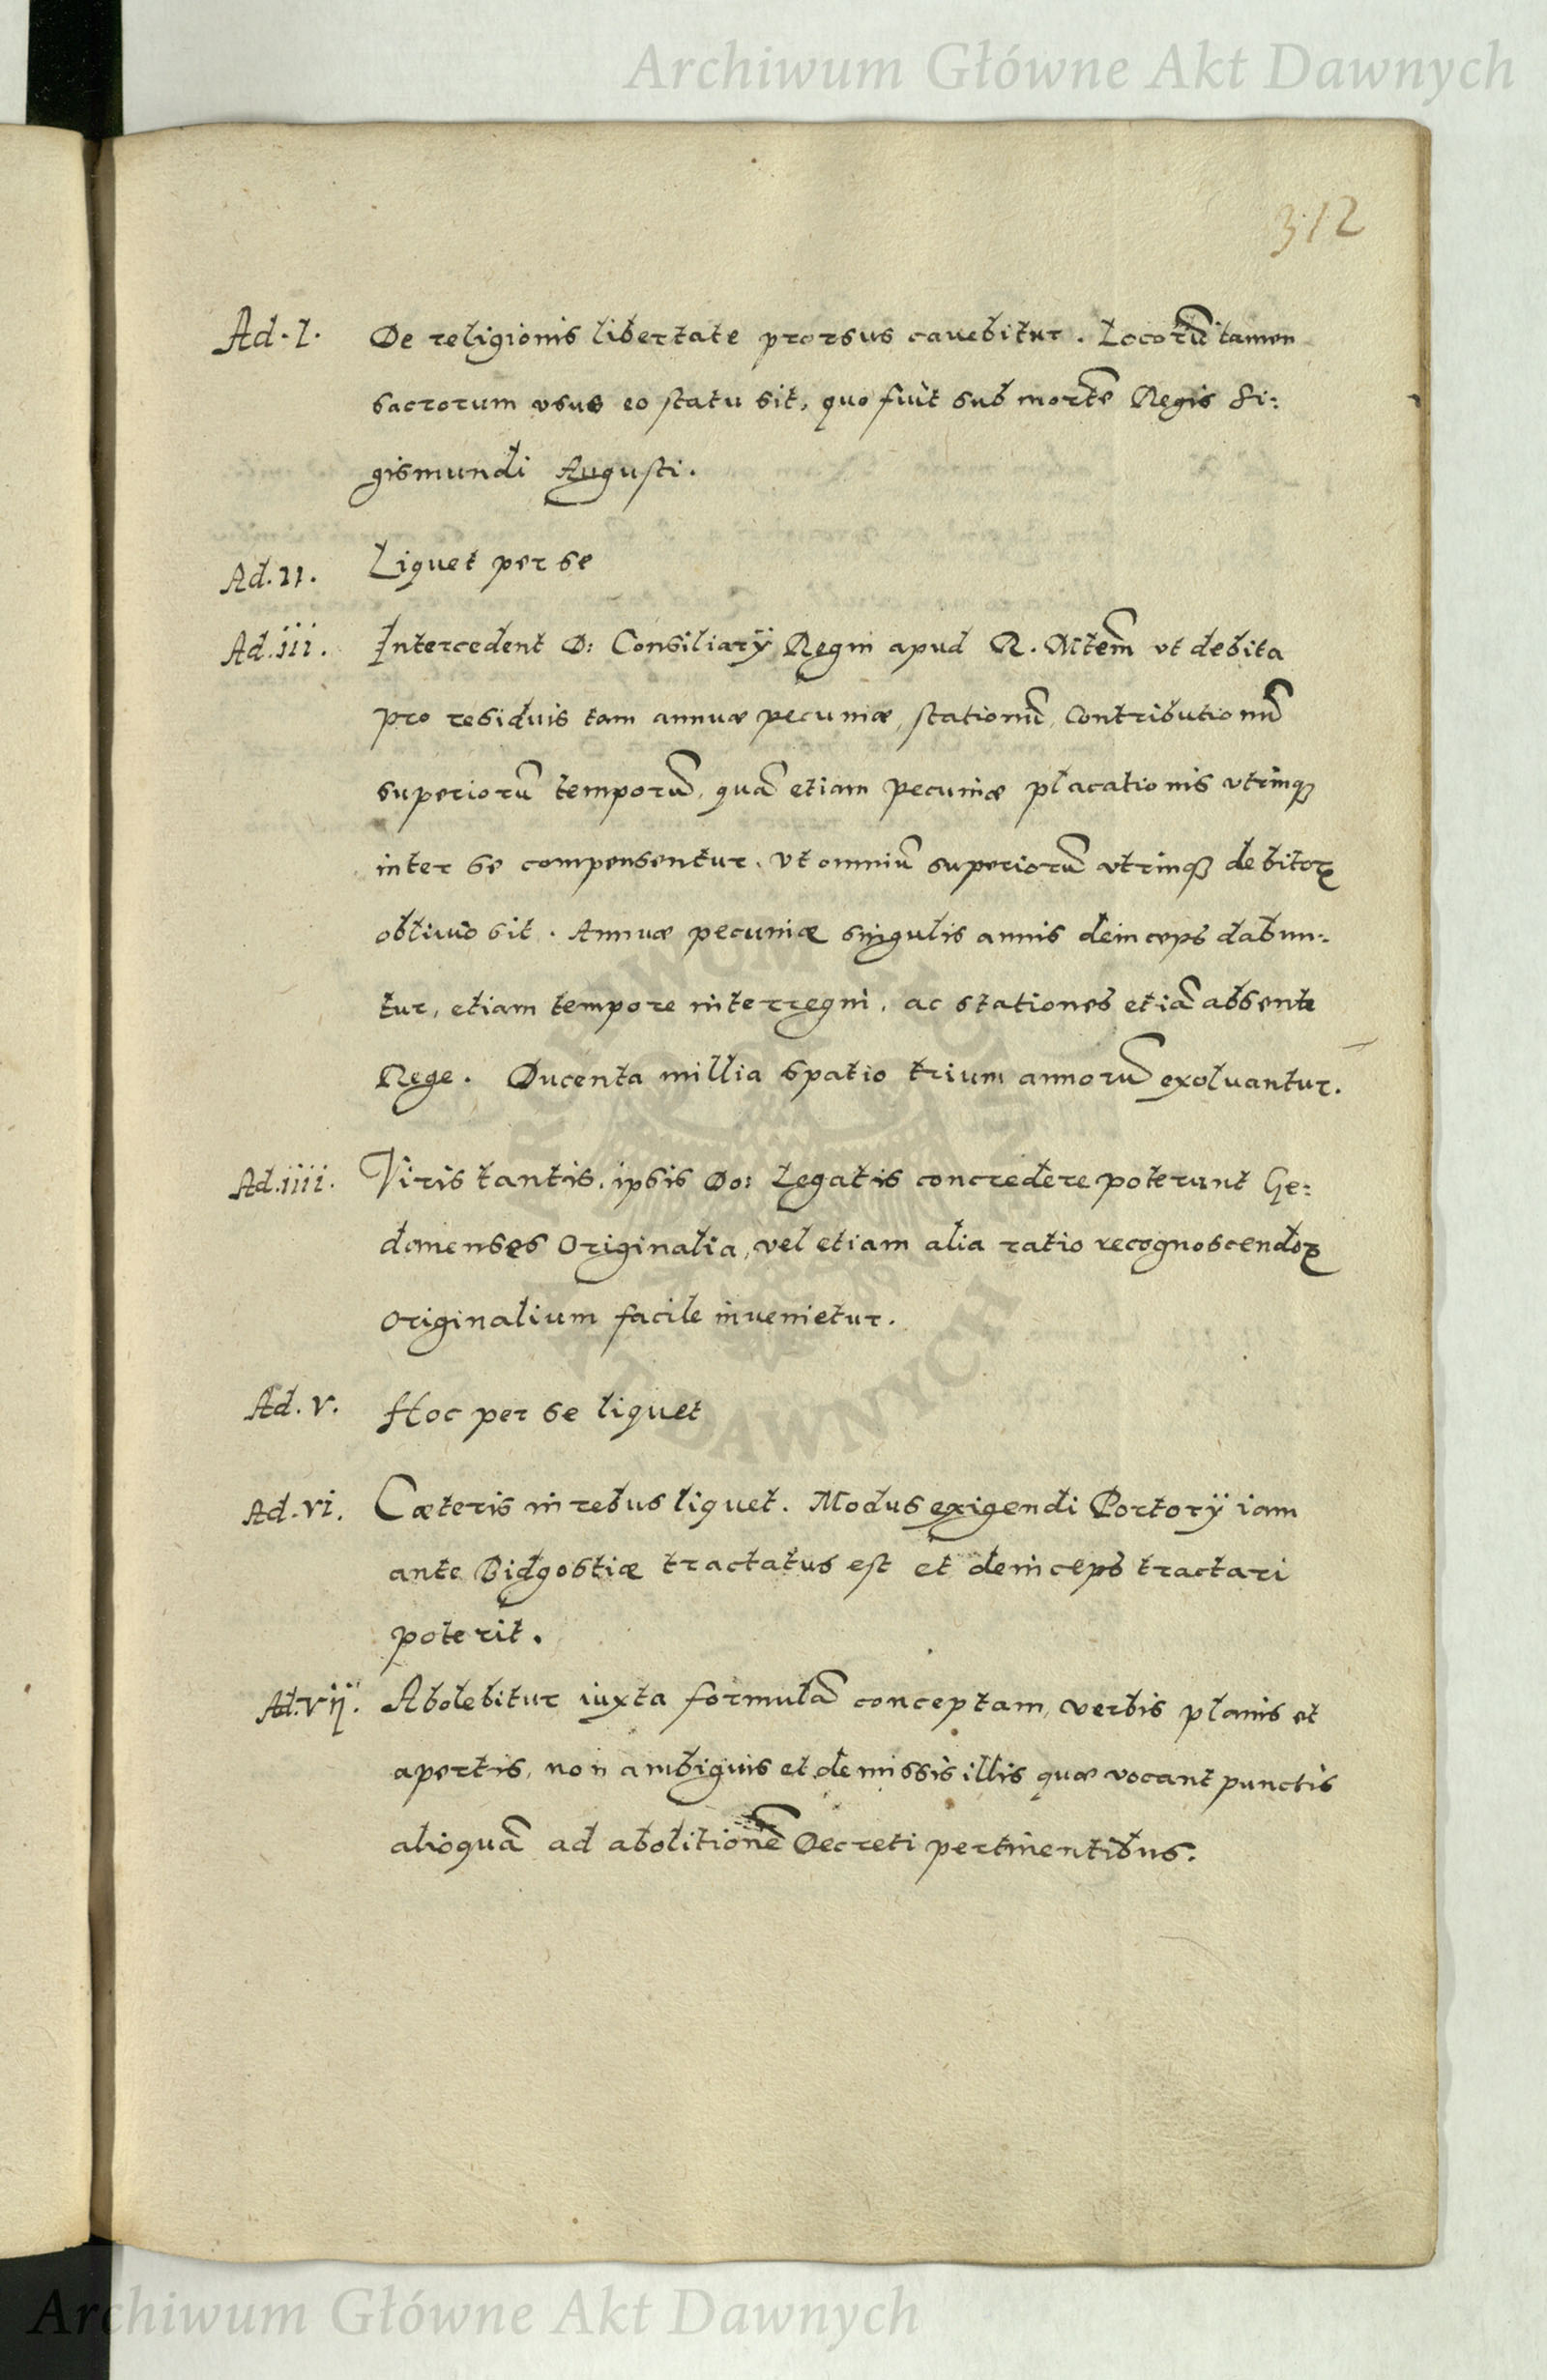 Archiwum Główne Akt Dawnych
312
Ad. I. De religionis libertate prorsus cauebitur. Locorũ tamen
sacrorum vsus eo statu sit, quo fuit sub morte Regis Si:
gismundi Augusti.
Ad. II. Liquet per se
Ad. iii. Intercedent D: Consiliarÿ Regni apud R. Mtem vt debita
pro residuis tam annuæ pecuniæ, stationũ, Contributionũ
superiorũ temporũ, quã etiam pecuniæ placationis vtrinqꝫ
inter se compensentur, vt omniũ superiorũ vtrinqꝫ debitoꝝ
obliuio sit. Annuæ pecuniæ singulis annis deinceps dabun:
tur, etiam tempore interregni, ac stationes etiã absente
Rege. Ducenta millia spatio trium annorũ exoluantur.
Ad. iiii. Viris tantis, ipsis Do: Legatis concredere poterunt Ge:
danenses Originalia, vel etiam alia ratio recognoscendoꝝ
Originalium facile inuenietur.
Ad. v. Hoc per se liquet
Ad. vi. Cæteris in rebus liquet. Modus exigendi Portorÿ iam
ante Bidgostiæ tractatus est et deinceps tractari
poterit.
Ad. vij. Abolebitur iuxta formulã conceptam, verbis planis et
apertis, non ambiguis et demissis illis quæ vocant punctis
alioquã ad abolitionẽ Decreti pertinentibus.
ARCHIWUM GŁÓWNE AKT DAWNYCH
Archiwum Główne Akt Dawnych